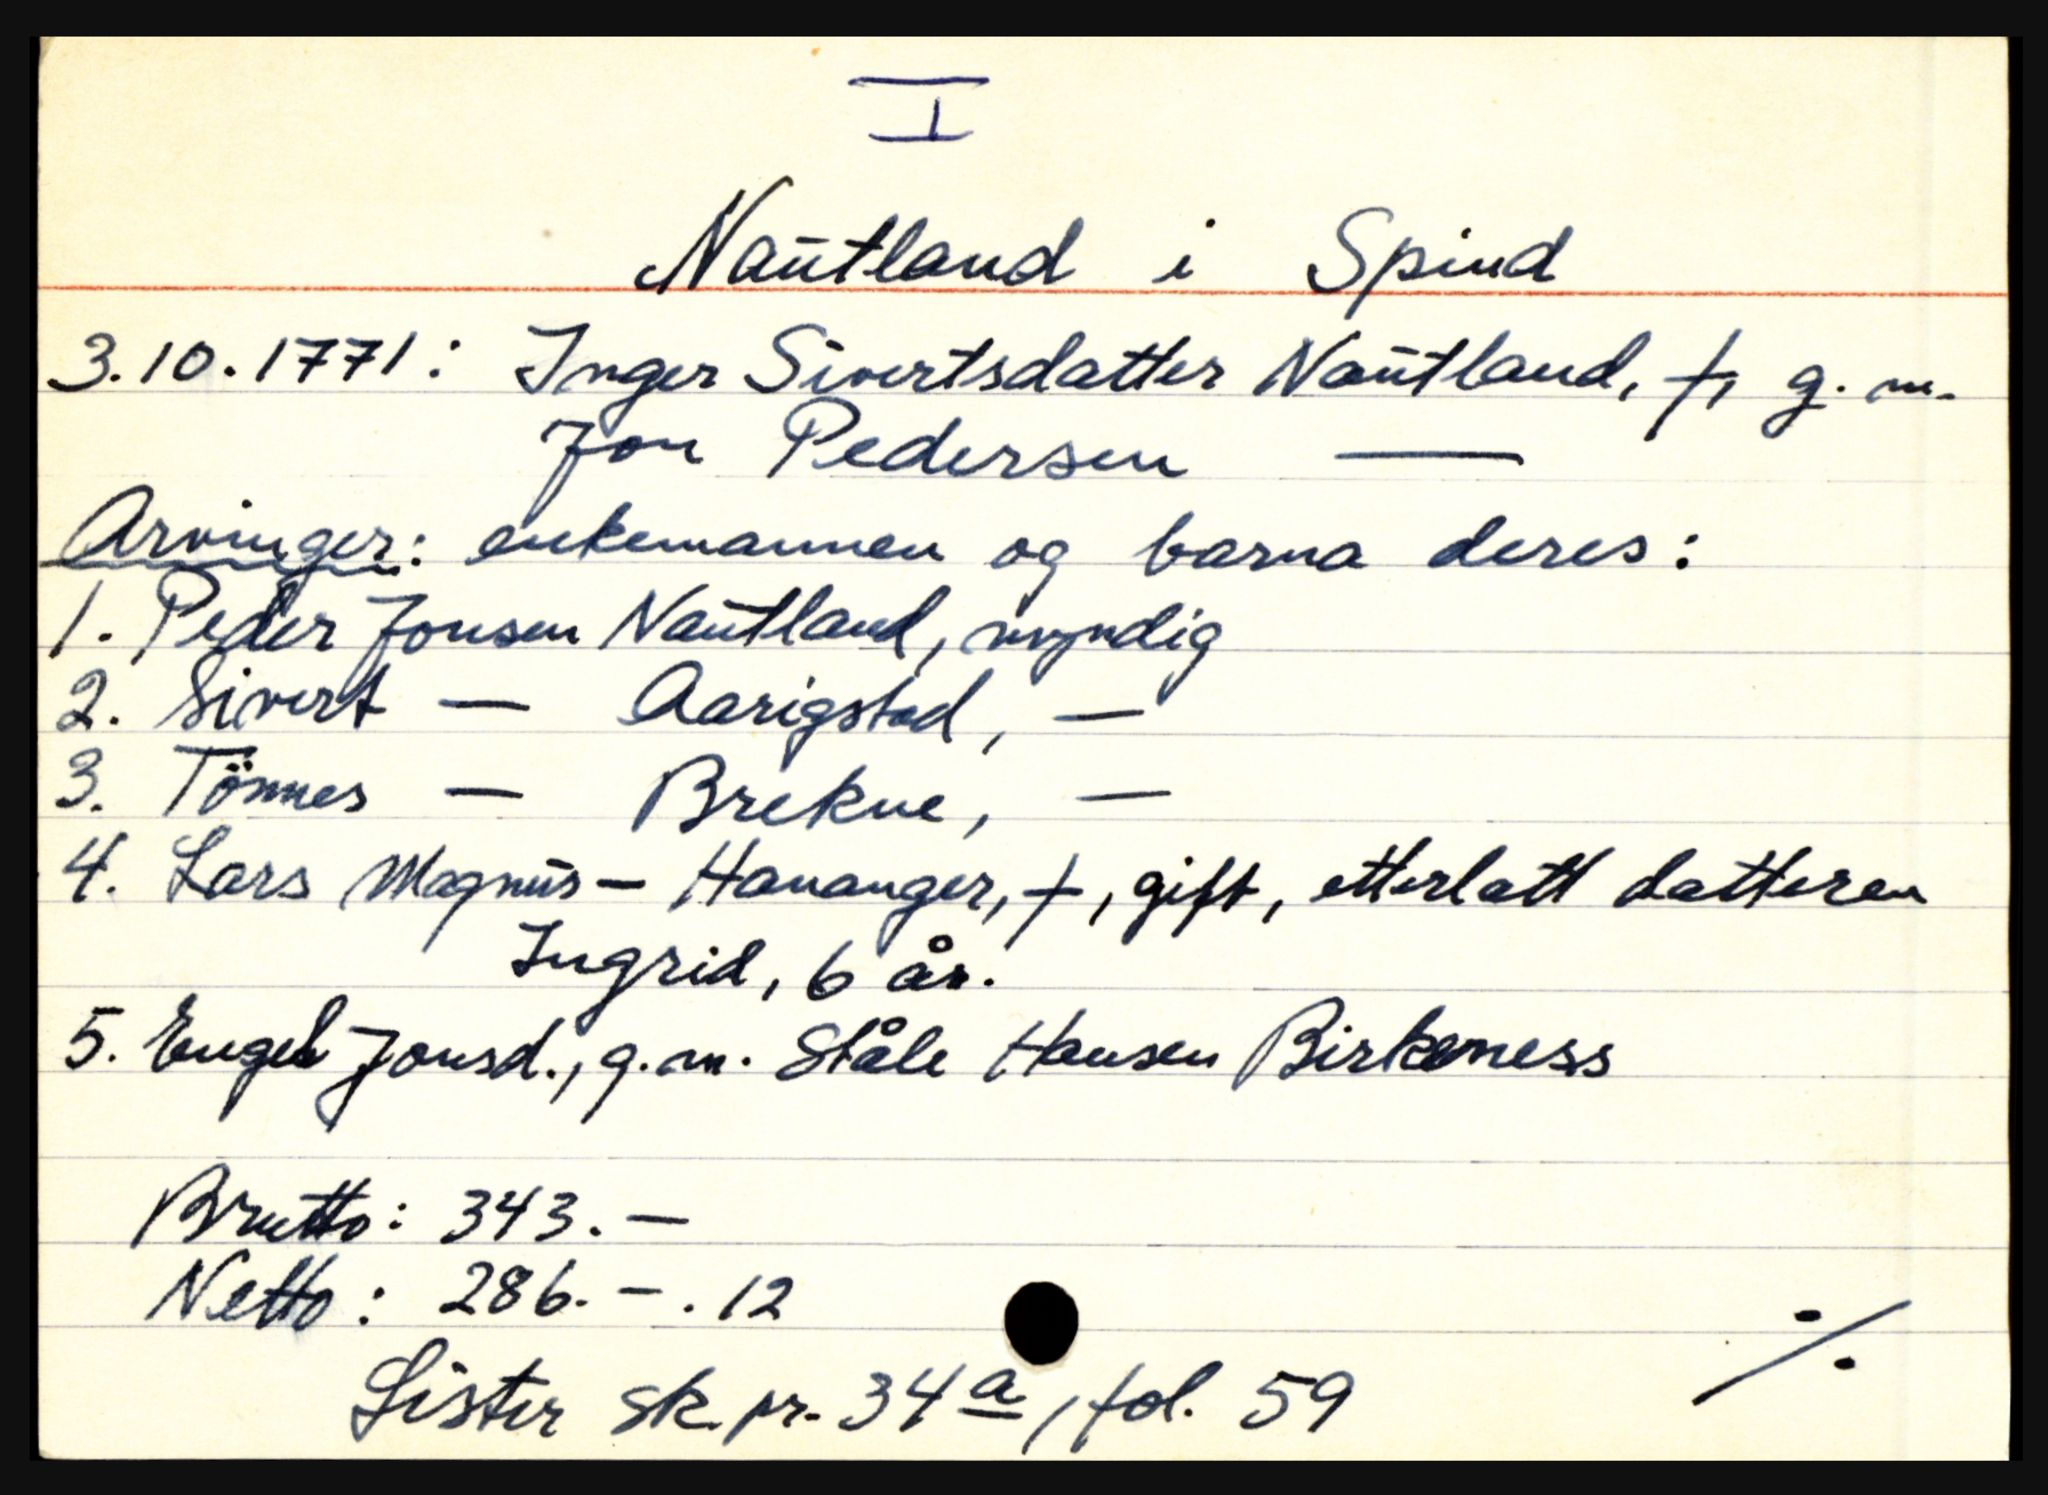 I
Naūtland i Spind
3.10.1771: Inger Sivertsdatter Naūtland, †, g. m.
Jon Pedersen —
Arvinger: enkemannen og barna deres:
1. Peder Jonsen Naūtland, myndig
2. Sivert — Aarigstad, —
3. Tönnes — Brekne, —
4. Lars Magnūs — Hananger, †, gift, etterlatt datteren
Ingrid, 6 år.
5. Engel Jonsd., g.m. Ståle Hansen Birkeness
Brutto: 343. —
Netto: 286. — . 12
Lister sk. pr. 34a, fol. 59
./.